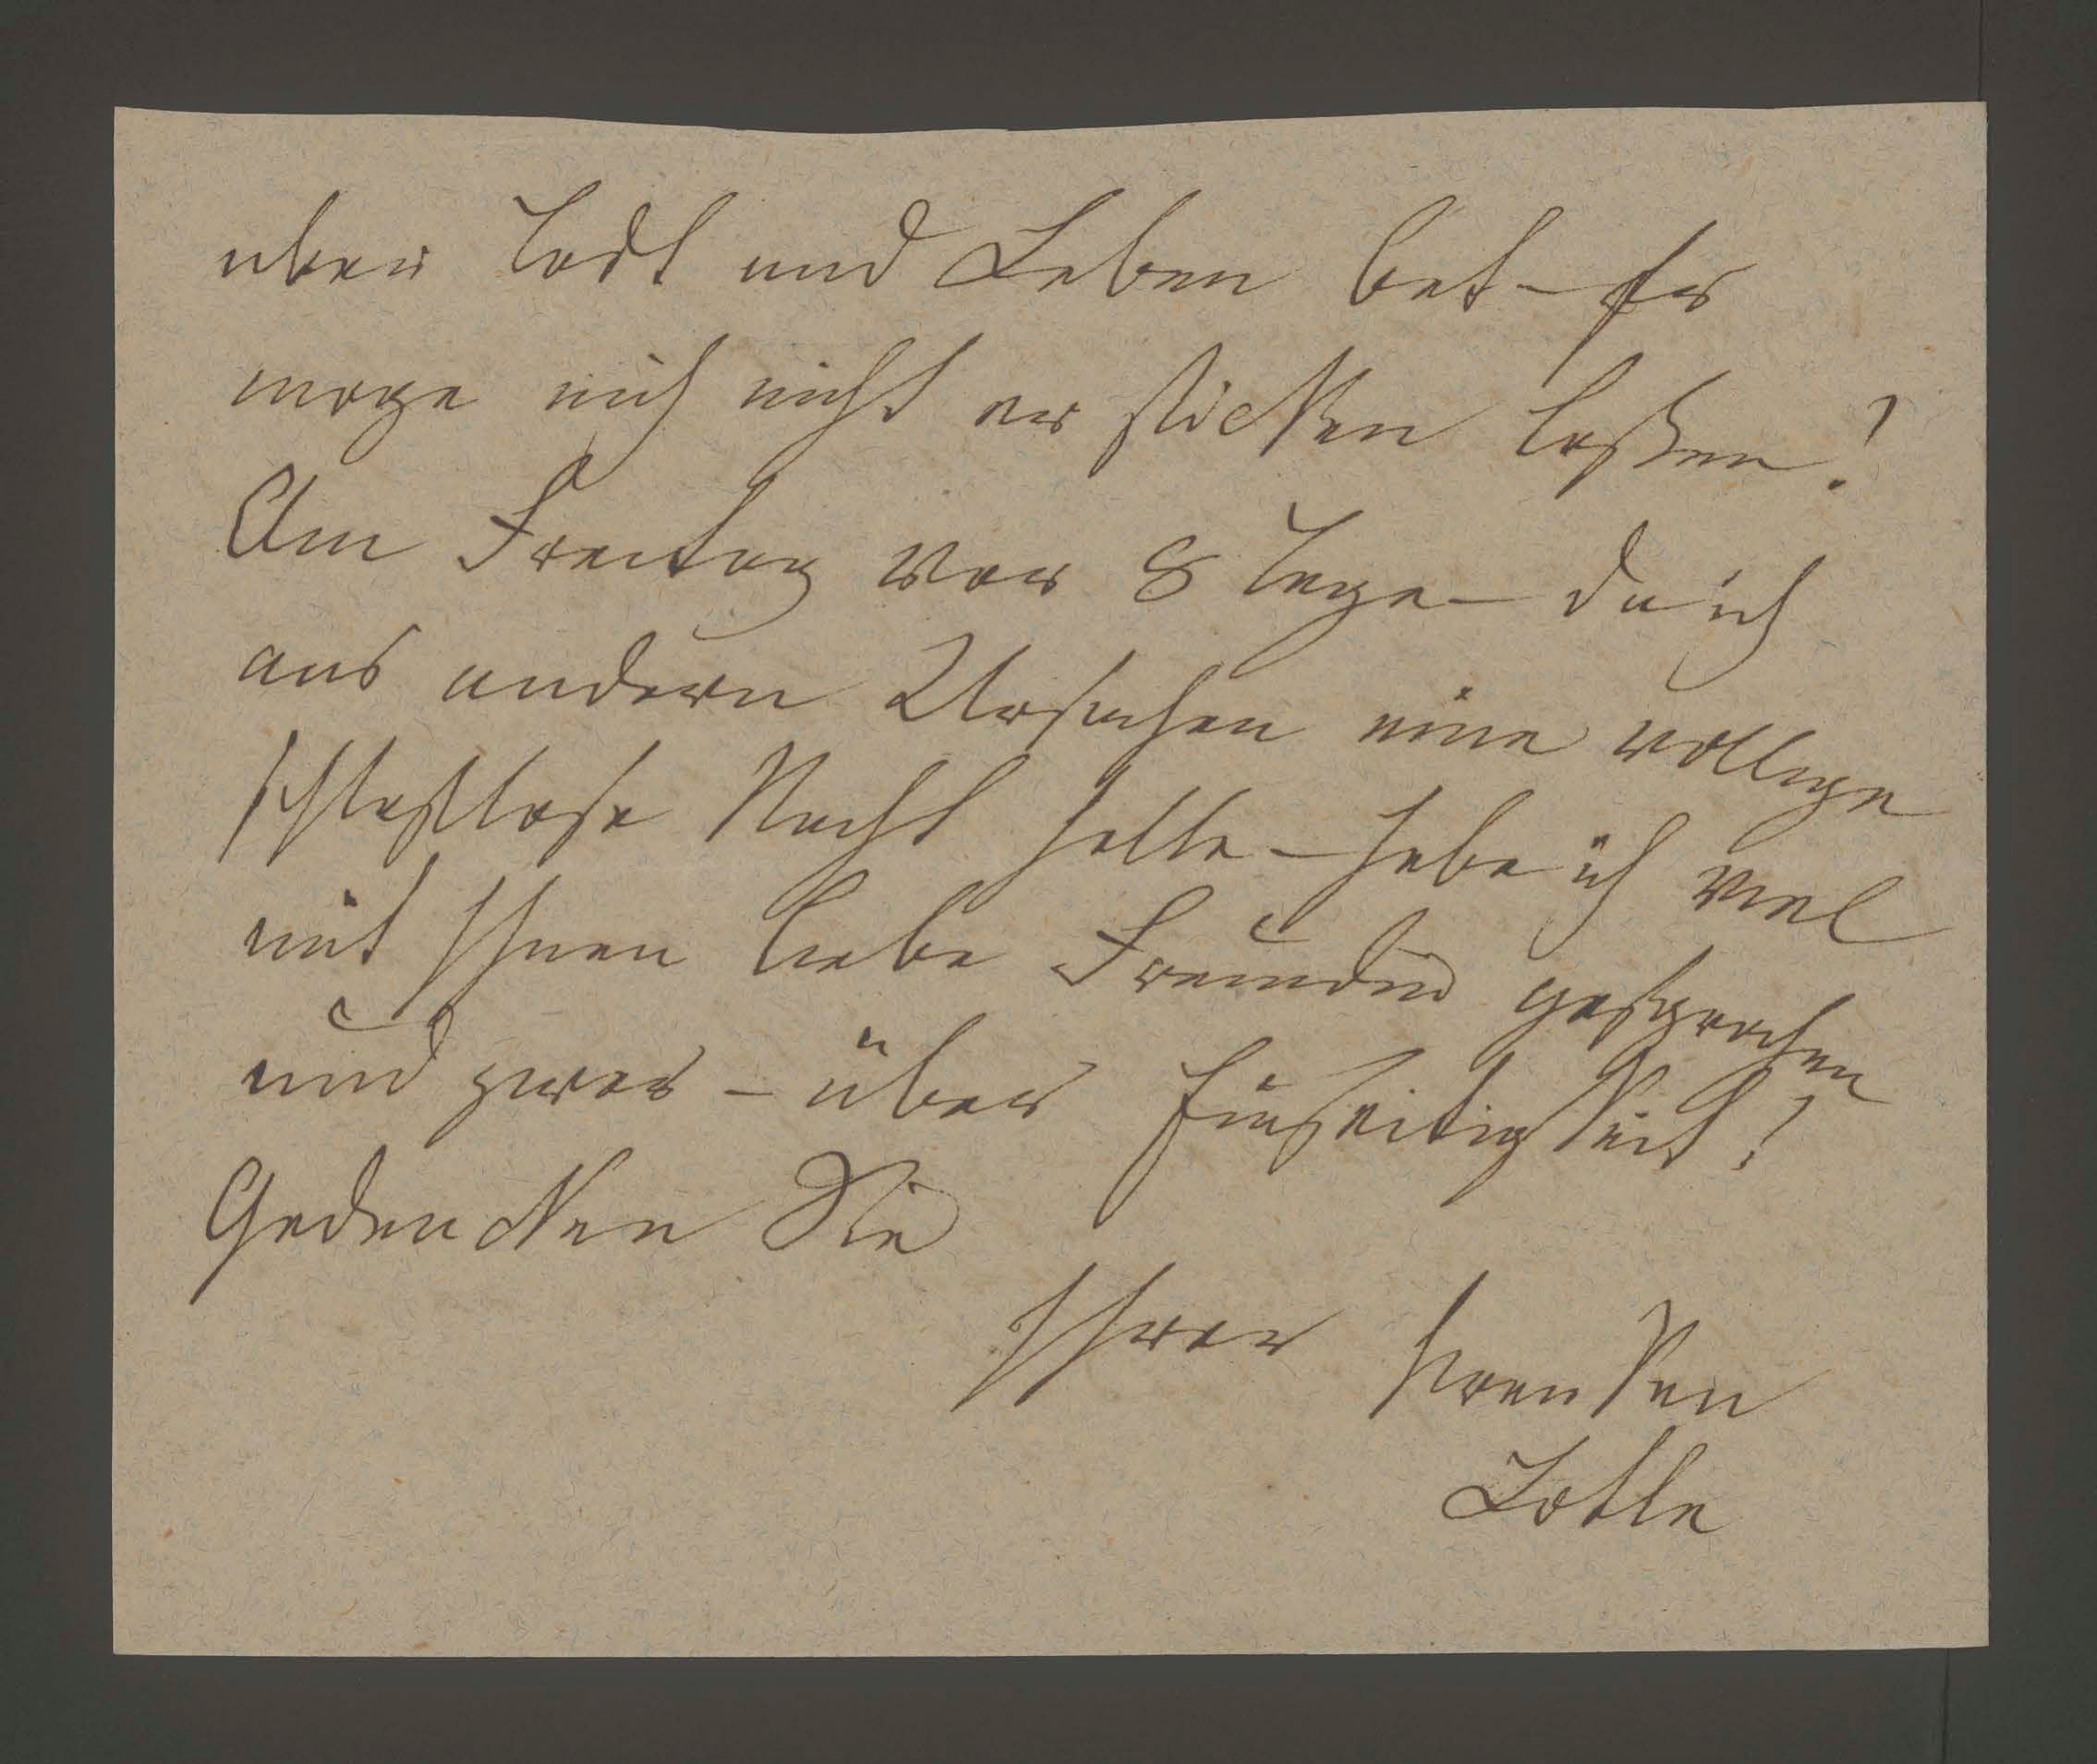 uber Todt und Leben bat – Er
moge mich nicht er sticken laßen!
Am Freitag vor 8 Tage – da ich
aus andern Ursachen eine vollige
schlaflose Nacht hatte – habe ich viel
mit Ihnen liebe Freundin gesprochen
und zwar – über Einseitigkeit!
Gedencken Sie
Ihrer kranken
Lotte